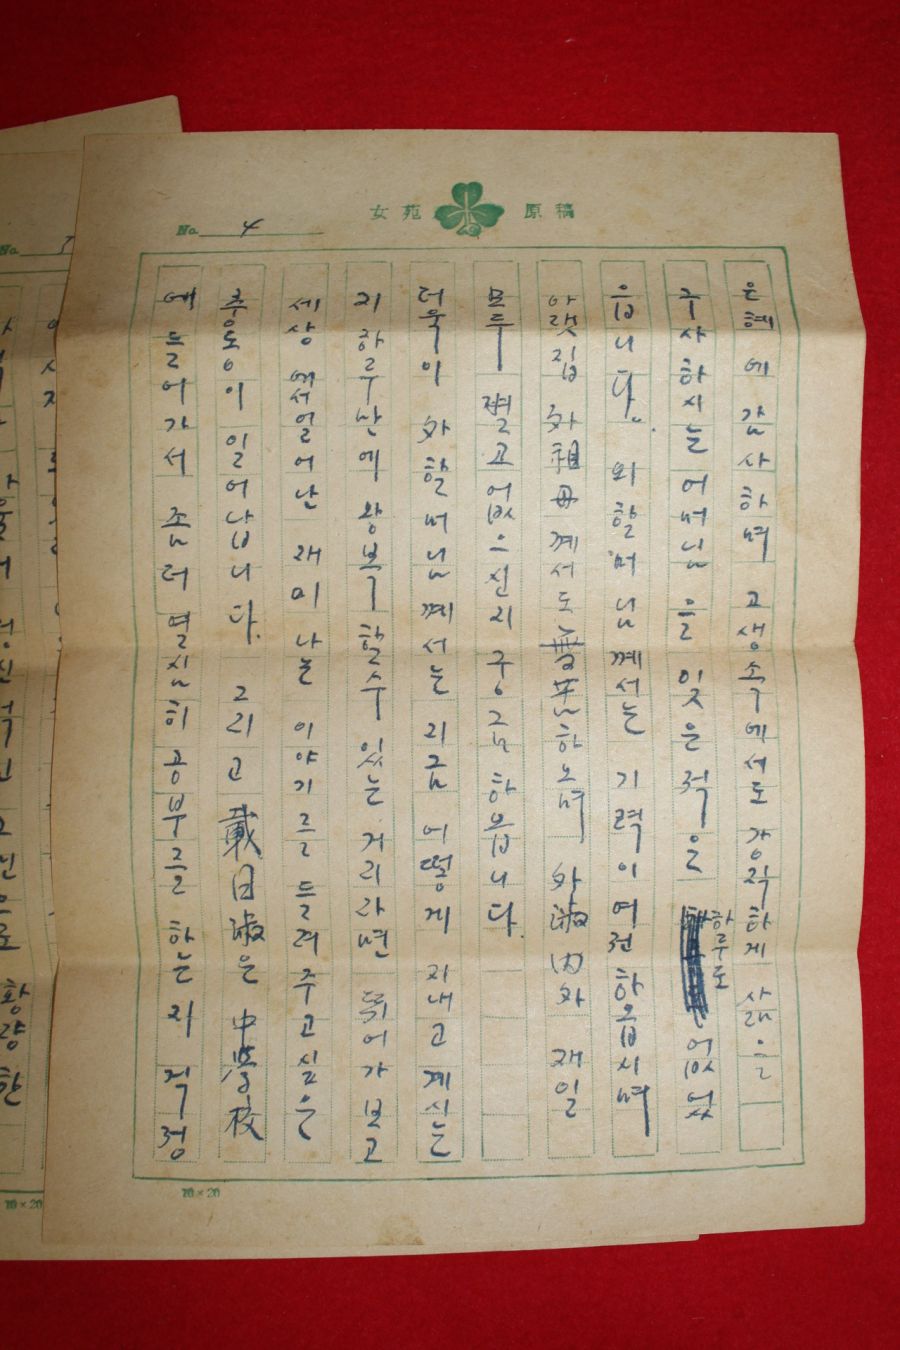 女苑 原稿
No. 4
은혜에 감사하며 고생속에서도 강직하게 삶을
구사하시는 어머님을 잊은적은 하루도 없었
읍니다. 외할머님께서는 기력이 여전하옵시며
아랫집 外祖母께서도 無恙하오며 外淑内外 재일
모두 별고 없으신지 궁금하옵니다.
더욱이 外할머님께서는 지금 어떻게 지내고 계시는
지 하루만에 왕복 할수 있는 거리라면 뛰어가 보고
세상에서 얼어난 재미나는 이야기를 들려주고 싶은
충동이 일어납니다. 그리고 載日淑은 中学校
에 들어가서 좀 더 열심히 공부를 하는지 걱정
10×20
No. 5
황량한
10×20